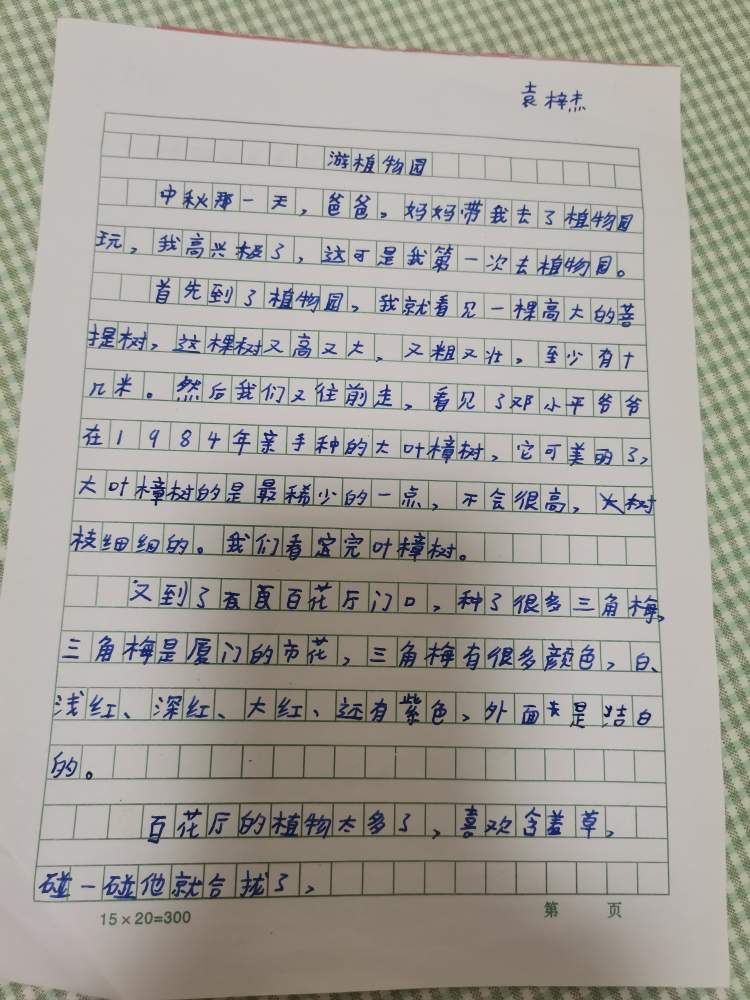 袁梓杰
游植物园
中秋那一天，爸爸，妈妈带我去了植物园
玩，我高兴极了，这可是我第一次去植物园。
首先到了植物园，我就看见一棵高大的菩
提树，这棵树又高又大，又粗又壮，至少有十
几米。然后我们又往前走，看见了邓小平爷爷
在1984年亲手种的大叶樟树，它可美丽了，
大叶樟树的是最稀少的一点，不会很高，树
枝细细的。我们看完叶樟树。
又到了百花厅门口，种了很多三角梅，
三角梅是厦门的市花，三角梅有很多颜色，白、
浅红、深红、大红、还有紫色，外面是洁白
的。
百花厅的植物太多了，喜欢含羞草，
碰一碰他就合拢了，
15×20=300
第 页